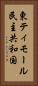 東ティモール
民主共和国